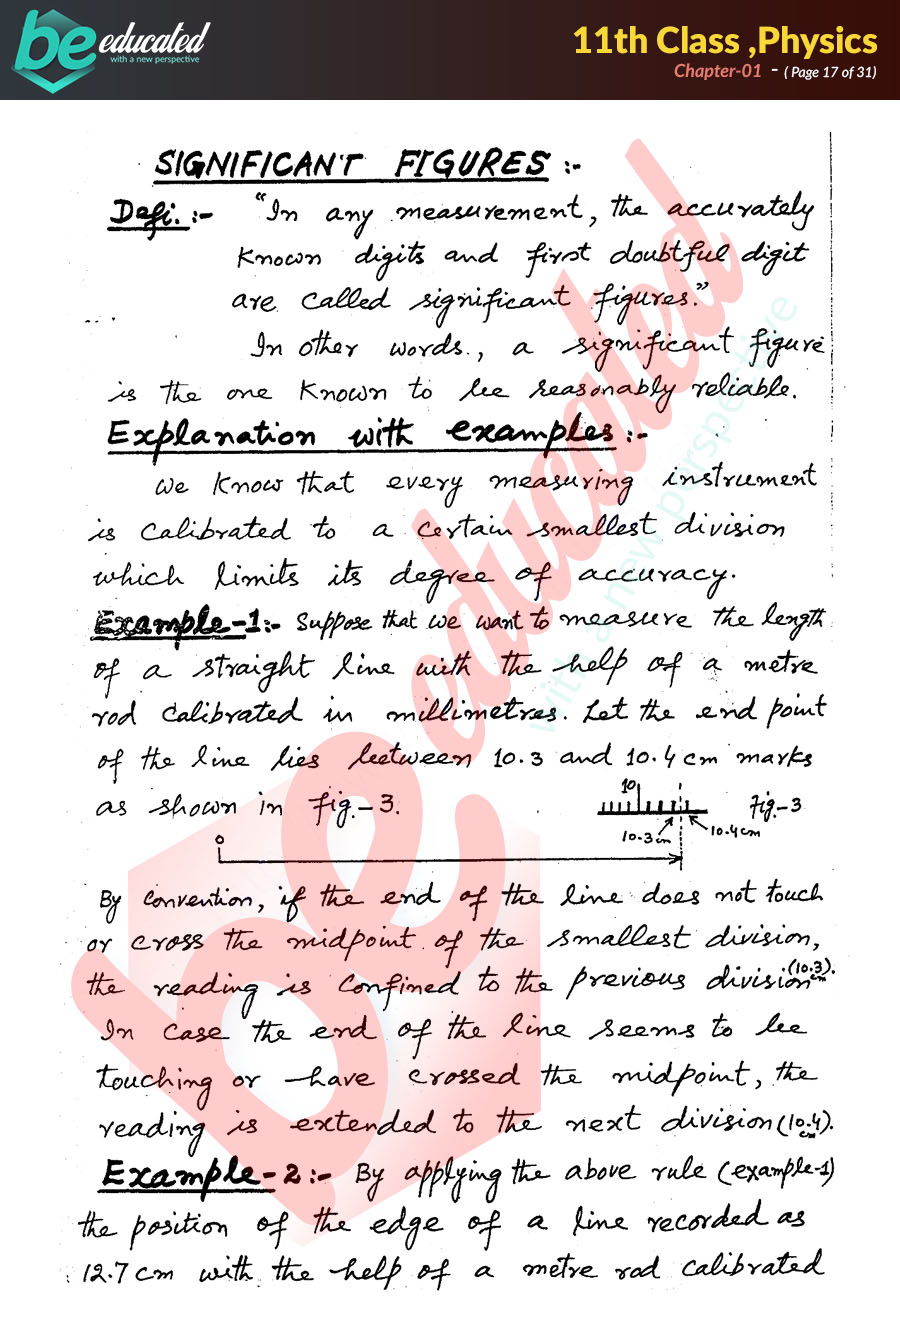 be educated
with a new perspective
11th Class ,Physics
Chapter-01 - ( Page 17 of 31)
SIGNIFICANT FIGURES :-
Defi. :- "In any measurement, the accurately
known digits and first doubtful digit
are called significant figures."
In other words, a significant figure
is the one known to be reasonably reliable.
Explanation with examples :-
We know that every measuring instrument
is calibrated to a certain smallest division
which limits its degree of accuracy.
Example-1:- Suppose that we want to measure the length
of a straight line with the help of a metre
rod calibrated in millimetres. Let the end point
of the line lies between 10.3 and 10.4 cm marks
as shown in fig.-3.
10
fig.-3
10.3cm
10.4cm
0
By convention, if the end of the line does not touch
or cross the midpoint of the smallest division,
the reading is confined to the previous division (10.3 cm).
In case the end of the line seems to be
touching or have crossed the midpoint, the
reading is extended to the next division (10.4 cm).
Example-2:- By applying the above rule (example-1)
the position of the edge of a line recorded as
12.7 cm with the help of a metre rod calibrated
be educated
with a new perspective